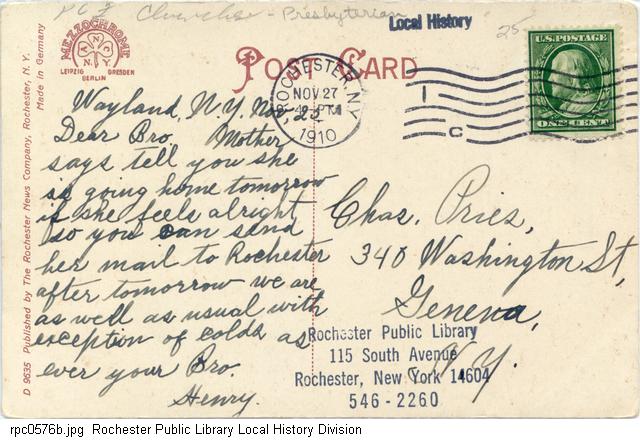 PC 3 Churches - Presbyterian
Local History
25
MEZZOCHROME
R N C
N.Y.
LEIPZIG DRESDEN
BERLIN
POST CARD
ROCHESTER, N.Y.
NOV 27
4 - PM
1910
1
C
U.S. POSTAGE
ONE CENT
Wayland, N.Y. Nov. 25
Dear Bro. Mother
says tell you she
is going home tomorrow
if she feels alright
so you can send
her mail to Rochester
after tomorrow we are
as well as usual with
exception of colds as
ever your Bro.
Henry.
Chas. Pries,
340 Washington St,
Geneva,
N.Y.
Rochester Public Library
115 South Avenue
Rochester, New York 14604
546-2260
D 9635 Published by The Rochester News Company, Rochester, N. Y.
Made in Germany
rpc0576b.jpg Rochester Public Library Local History Division